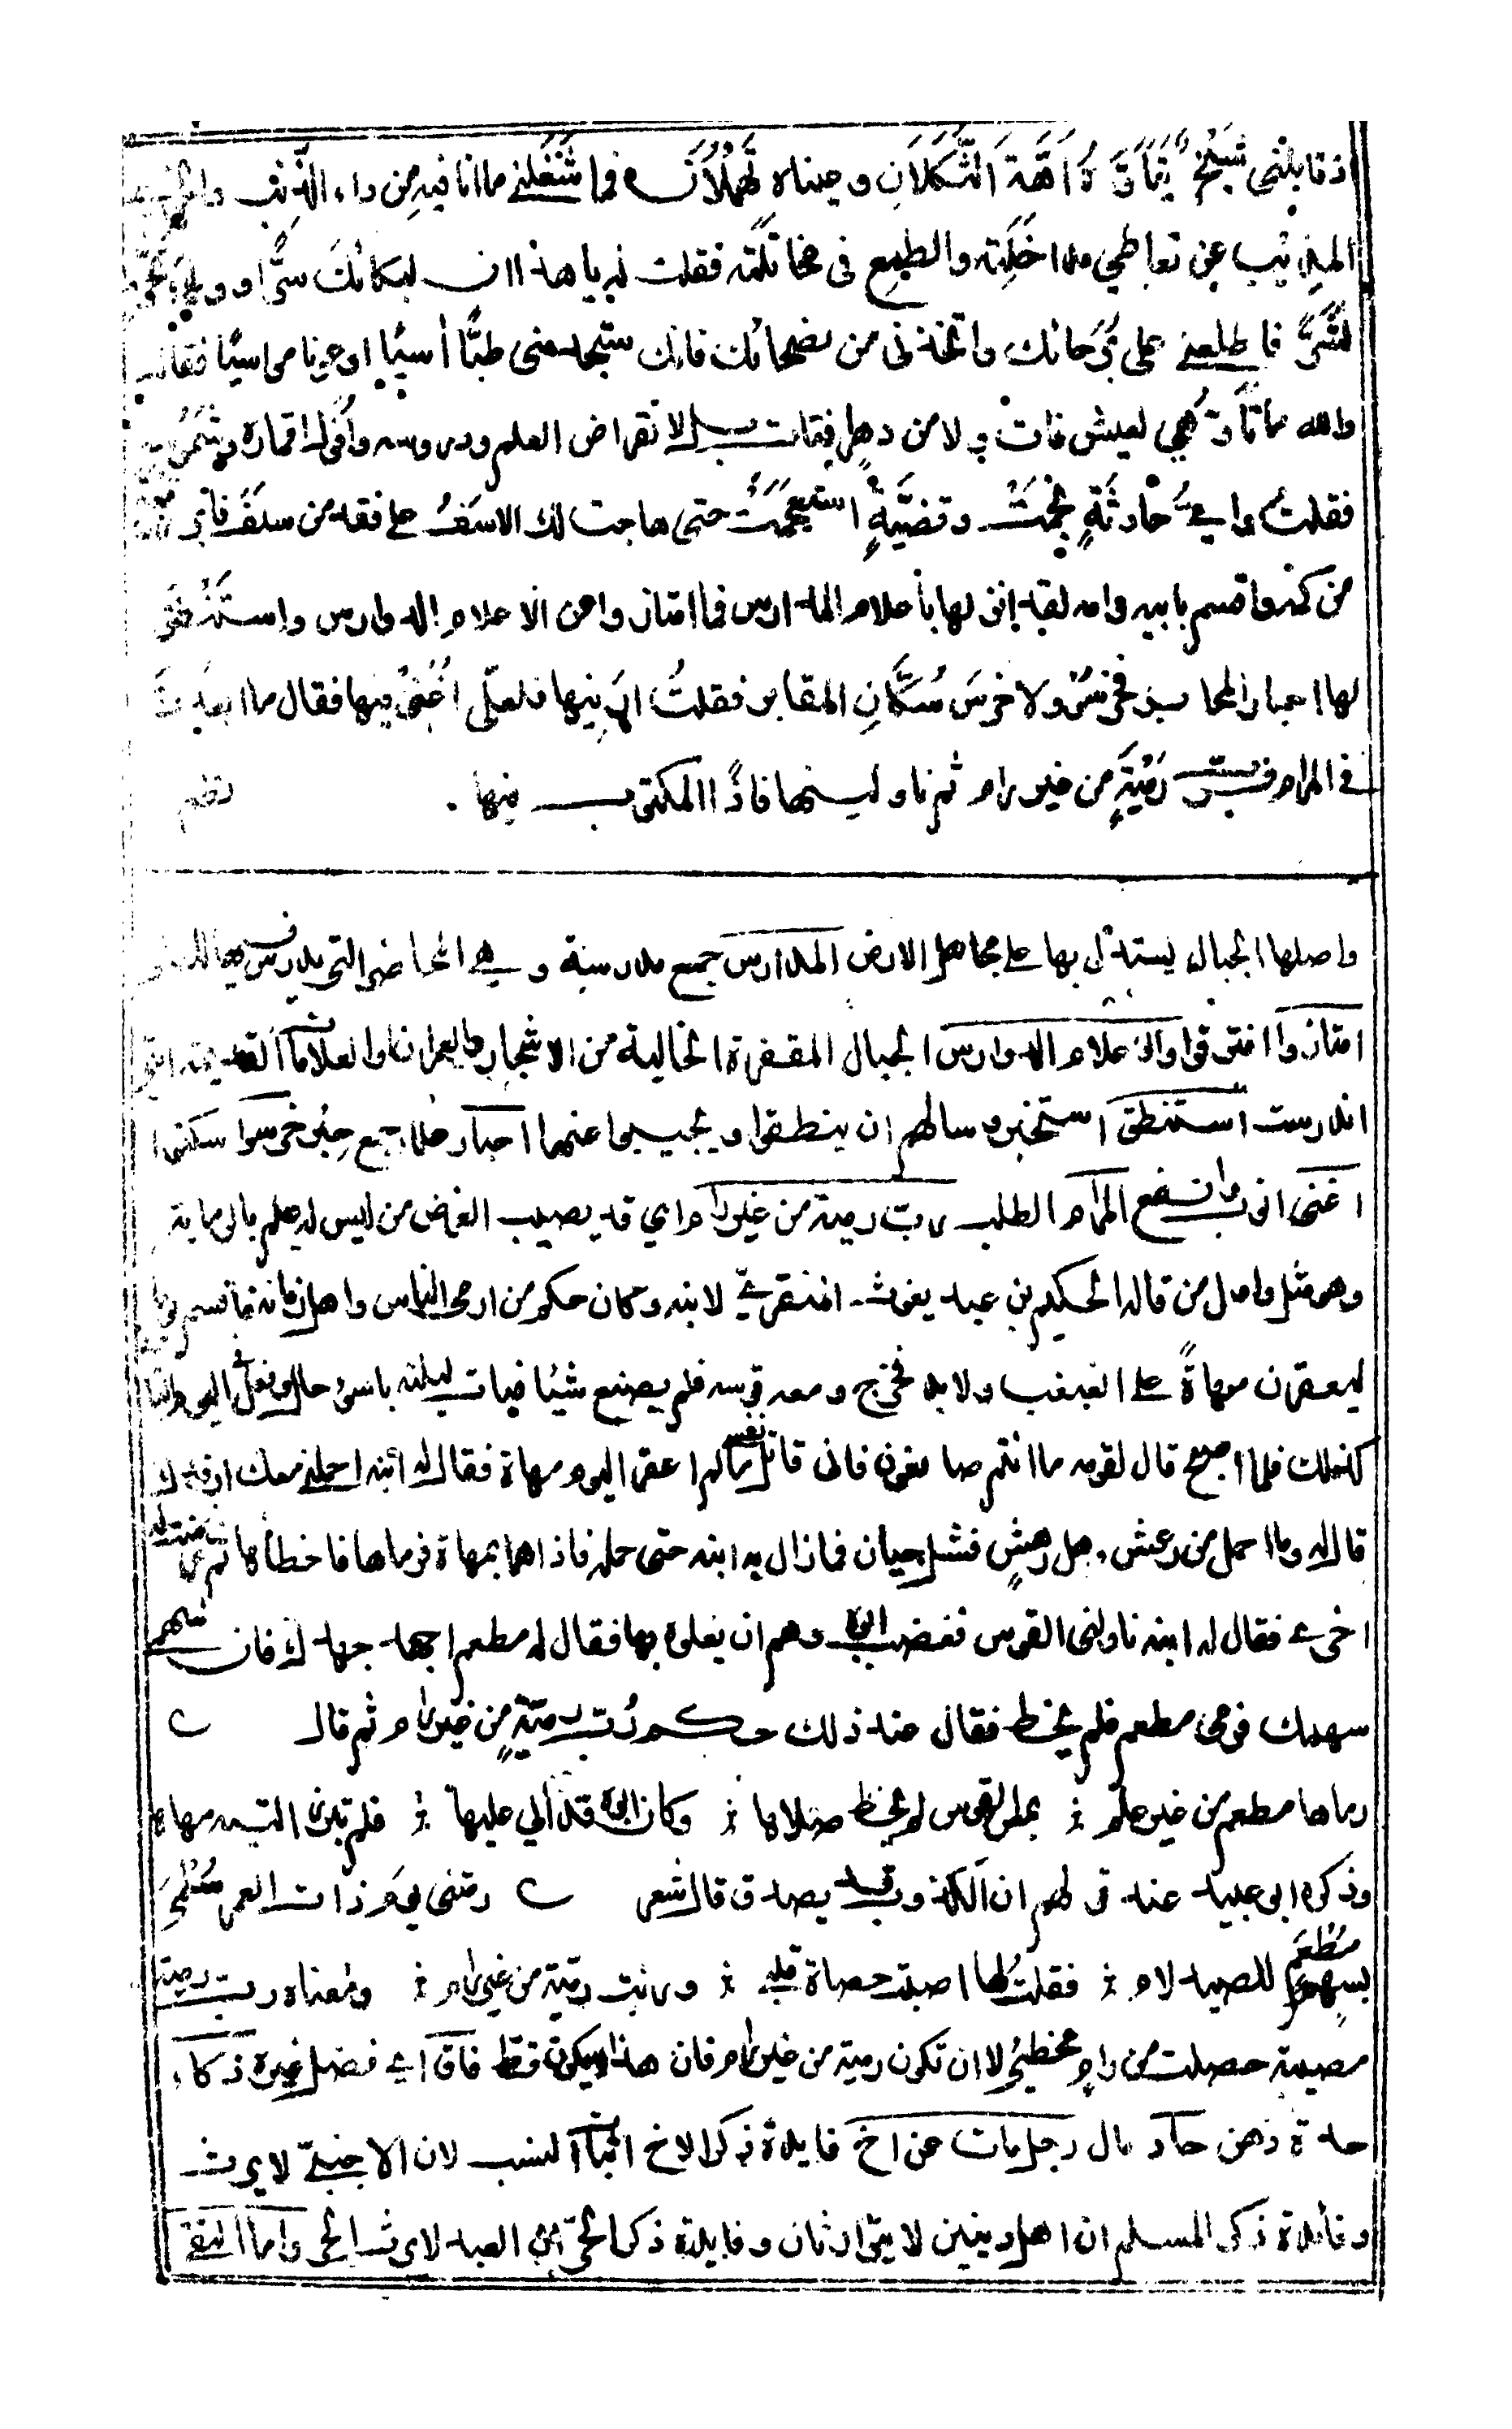 اذ قابلني شيخ يتأوه أهة الثكلان وعيناه تهملان فما شغلني ما انا فيه من داء الذيب
المذيب عن تعاطي مداخلته والطمع في مخاتلته فقلت له يا هذا ان لبكائك سرا ووراء
لشرا فاطلعني على برحائك واتخذني من نصحائك فانك ستجد مني طبا أسيا او عونا مواسيا فقال
والله ما تأوهي لعيش فات ولا من دهر افتات بل لانقراض العلم ودروسه وأفول اقماره
فقلت واي حادثة نجمت وقضية استعجمت حتى هاجت لك الاسف على فقد من سلف فابرز
من كمه واقسم بابيه وامه لقد انزلها بأعلام المدارس فما امتازوا عن الاعلام الدوارس واستنطق
لها احبار المحابر فخرسوا ولا خرس سكان المقابر فقلت ارنيها فلعلي اغني فيها فقال ما ابعدت
في المرام فرب رمية من غير رام ثم ناولنيها فاذا المكتوب فيها . نظم
واصلها الجبال يستدل بها على مجاهل الارض المدارس جمع مدرسة وهي المواضع التي يدرس فيها
امتازوا افترقوا والاعلام الدوارس الجبال المقفرة الخالية من الاشجار والعمران او العلامات القديمة التي
اندرست استنطق استخبر وسالهم ان ينطقوا ويجيبوا عنها احبار علما جمع حبر خرسوا سكتوا
اغني اي وانفع المرام الطلب رب رمية من غير رام اي قد يصيب الغرض من ليس له علم بالرماية
وهو مثل واول من قاله الحكيم بن عبد يغوث المنقري لابنه وكان حكم من ارمى الناس واهل زمانه فاقسم يوما
ليعقرن مهاة على الغبغب ولا بد فخرج ومعه قوسه فلم يصنع شيئا فبات ليلته باسوء حال وفعل في اليوم الثاني
كذلك فلما اصبح قال لقومه ما انتم صانعون فاني قاتل نفسي ما لم اعقر اليوم مهاة فقال له ابنه احملني معك ارفدك
قال له وما احمل من رعش وهل رهش فشل جبان فما زال به ابنه حتى حمله فاذا هما بمهاة فرماها فاخطأها ثم عرضت له
اخرى فقال له ابنه ناولني القوس فغضب ابوه وهم ان يعلوه بها فقال له مطعم اجهد جهدك فان سهم
سهمك فرمى مطعم فلم يخط فقال عند ذلك حكم رب رمية من غير رام ثم قال
رماها مطعم من غير علم ؛ بحمل القوس لم يخط صلاها ؛ وكان ابوه قد آلى عليها ؛ فلم تبرر اليته مهاه
وذكره ابو عبيد عند قولهم ان الكذوب قد يصدق قال شعر رمتني يوم ذات الغمر سلمى
بسهم مطعم للصيد لام ؛ فقلت لها اصبت حصاة قلبي ؛ وربت رمية من غير رام ؛ ومعناه رب رمية
مصيبة حصلت من رام مخطئ لا ان تكون رمية من غير رام فان هذا لا يكون قط فاق اي فضل غيره ذكاء
حدة ذهن حاد مال رجل مات عن اخ فايدة ذكر الاخ اثبات النسب لان الاجنبي لا يرث
وفايدة ذكر المسلم ان اهل دينين لا يتوارثان وفايدة ذكر الحر ان العبد لا يرث الحر واما التقي